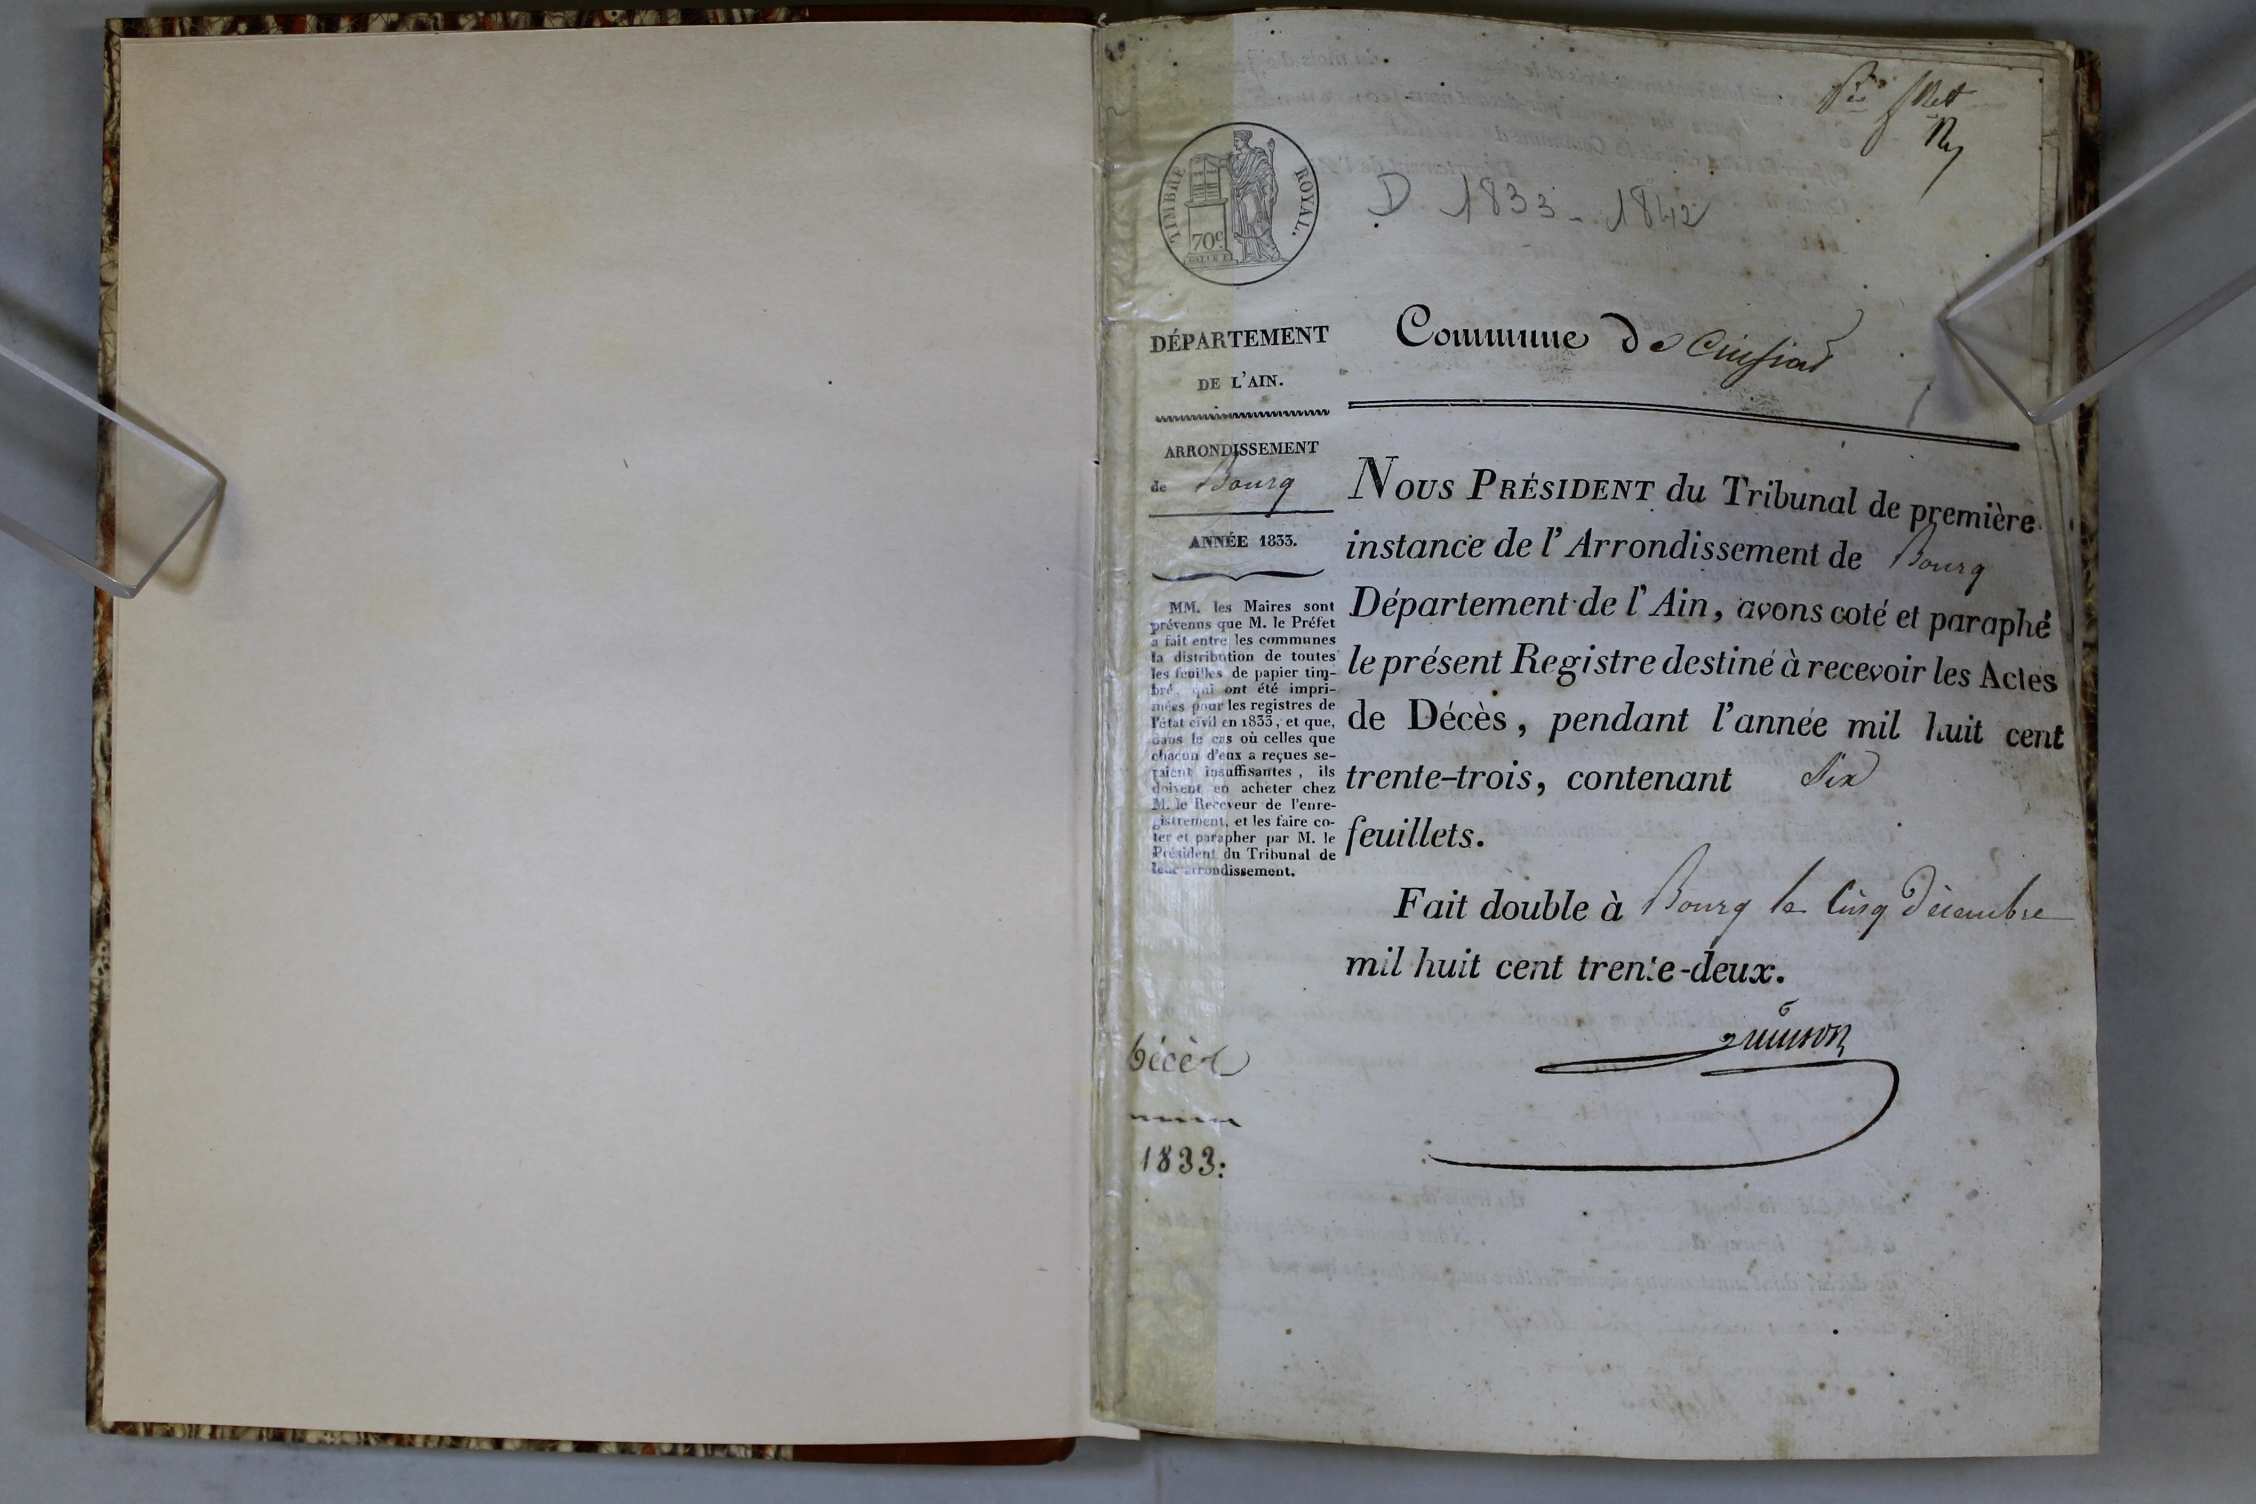 TIMBRE ROYAL.
70c
D 1833 - 1842
DÉPARTEMENT
DE L'AIN.
ARRONDISSEMENT
de Bourg
ANNÉE 1833.
MM. les Maires sont
prévenus que M. le Préfet
a fait entre les communes
la distribution de toutes
les feuilles de papier tim-
bré, qui ont été impri-
mées pour les registres de
l'état civil en 1833, et que,
dans le cas où celles que
chacun d'eux a reçues se-
raient insuffisantes, ils
doivent en acheter chez
M. le Receveur de l'enre-
gistrement, et les faire co-
ter et parapher par M. le
Président du Tribunal de
leur arrondissement.
Décès
1833:
Commune de
NOUS PRÉSIDENT du Tribunal de première
instance de l'Arrondissement de Bourg
Département de l'Ain, avons coté et paraphé
le présent Registre destiné à recevoir les Actes
de Décès, pendant l'année mil huit cent
trente-trois, contenant Six
feuillets.
Fait double à Bourg le Cinq Décembre
mil huit cent trente-deux.